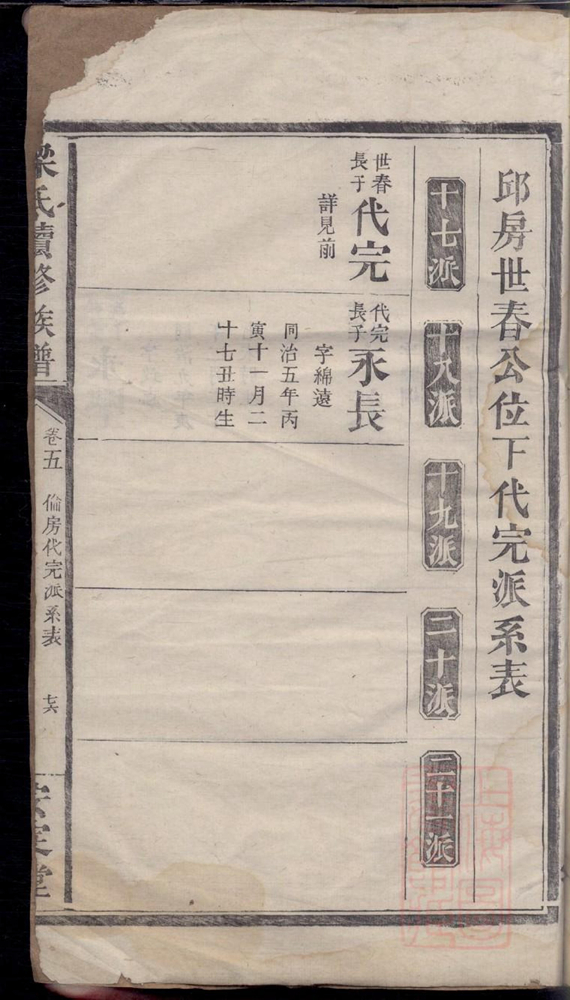 邱房世春公位下代完派系表
十七派
十八派
十九派
二十派
二十一派
世春
長子
代完
詳見前
代完
長子
永長
字綿遠
同治五年丙
寅十一月二
十七丑時生
氏續修族譜
卷五
倫房代完派系表
七六
定堂